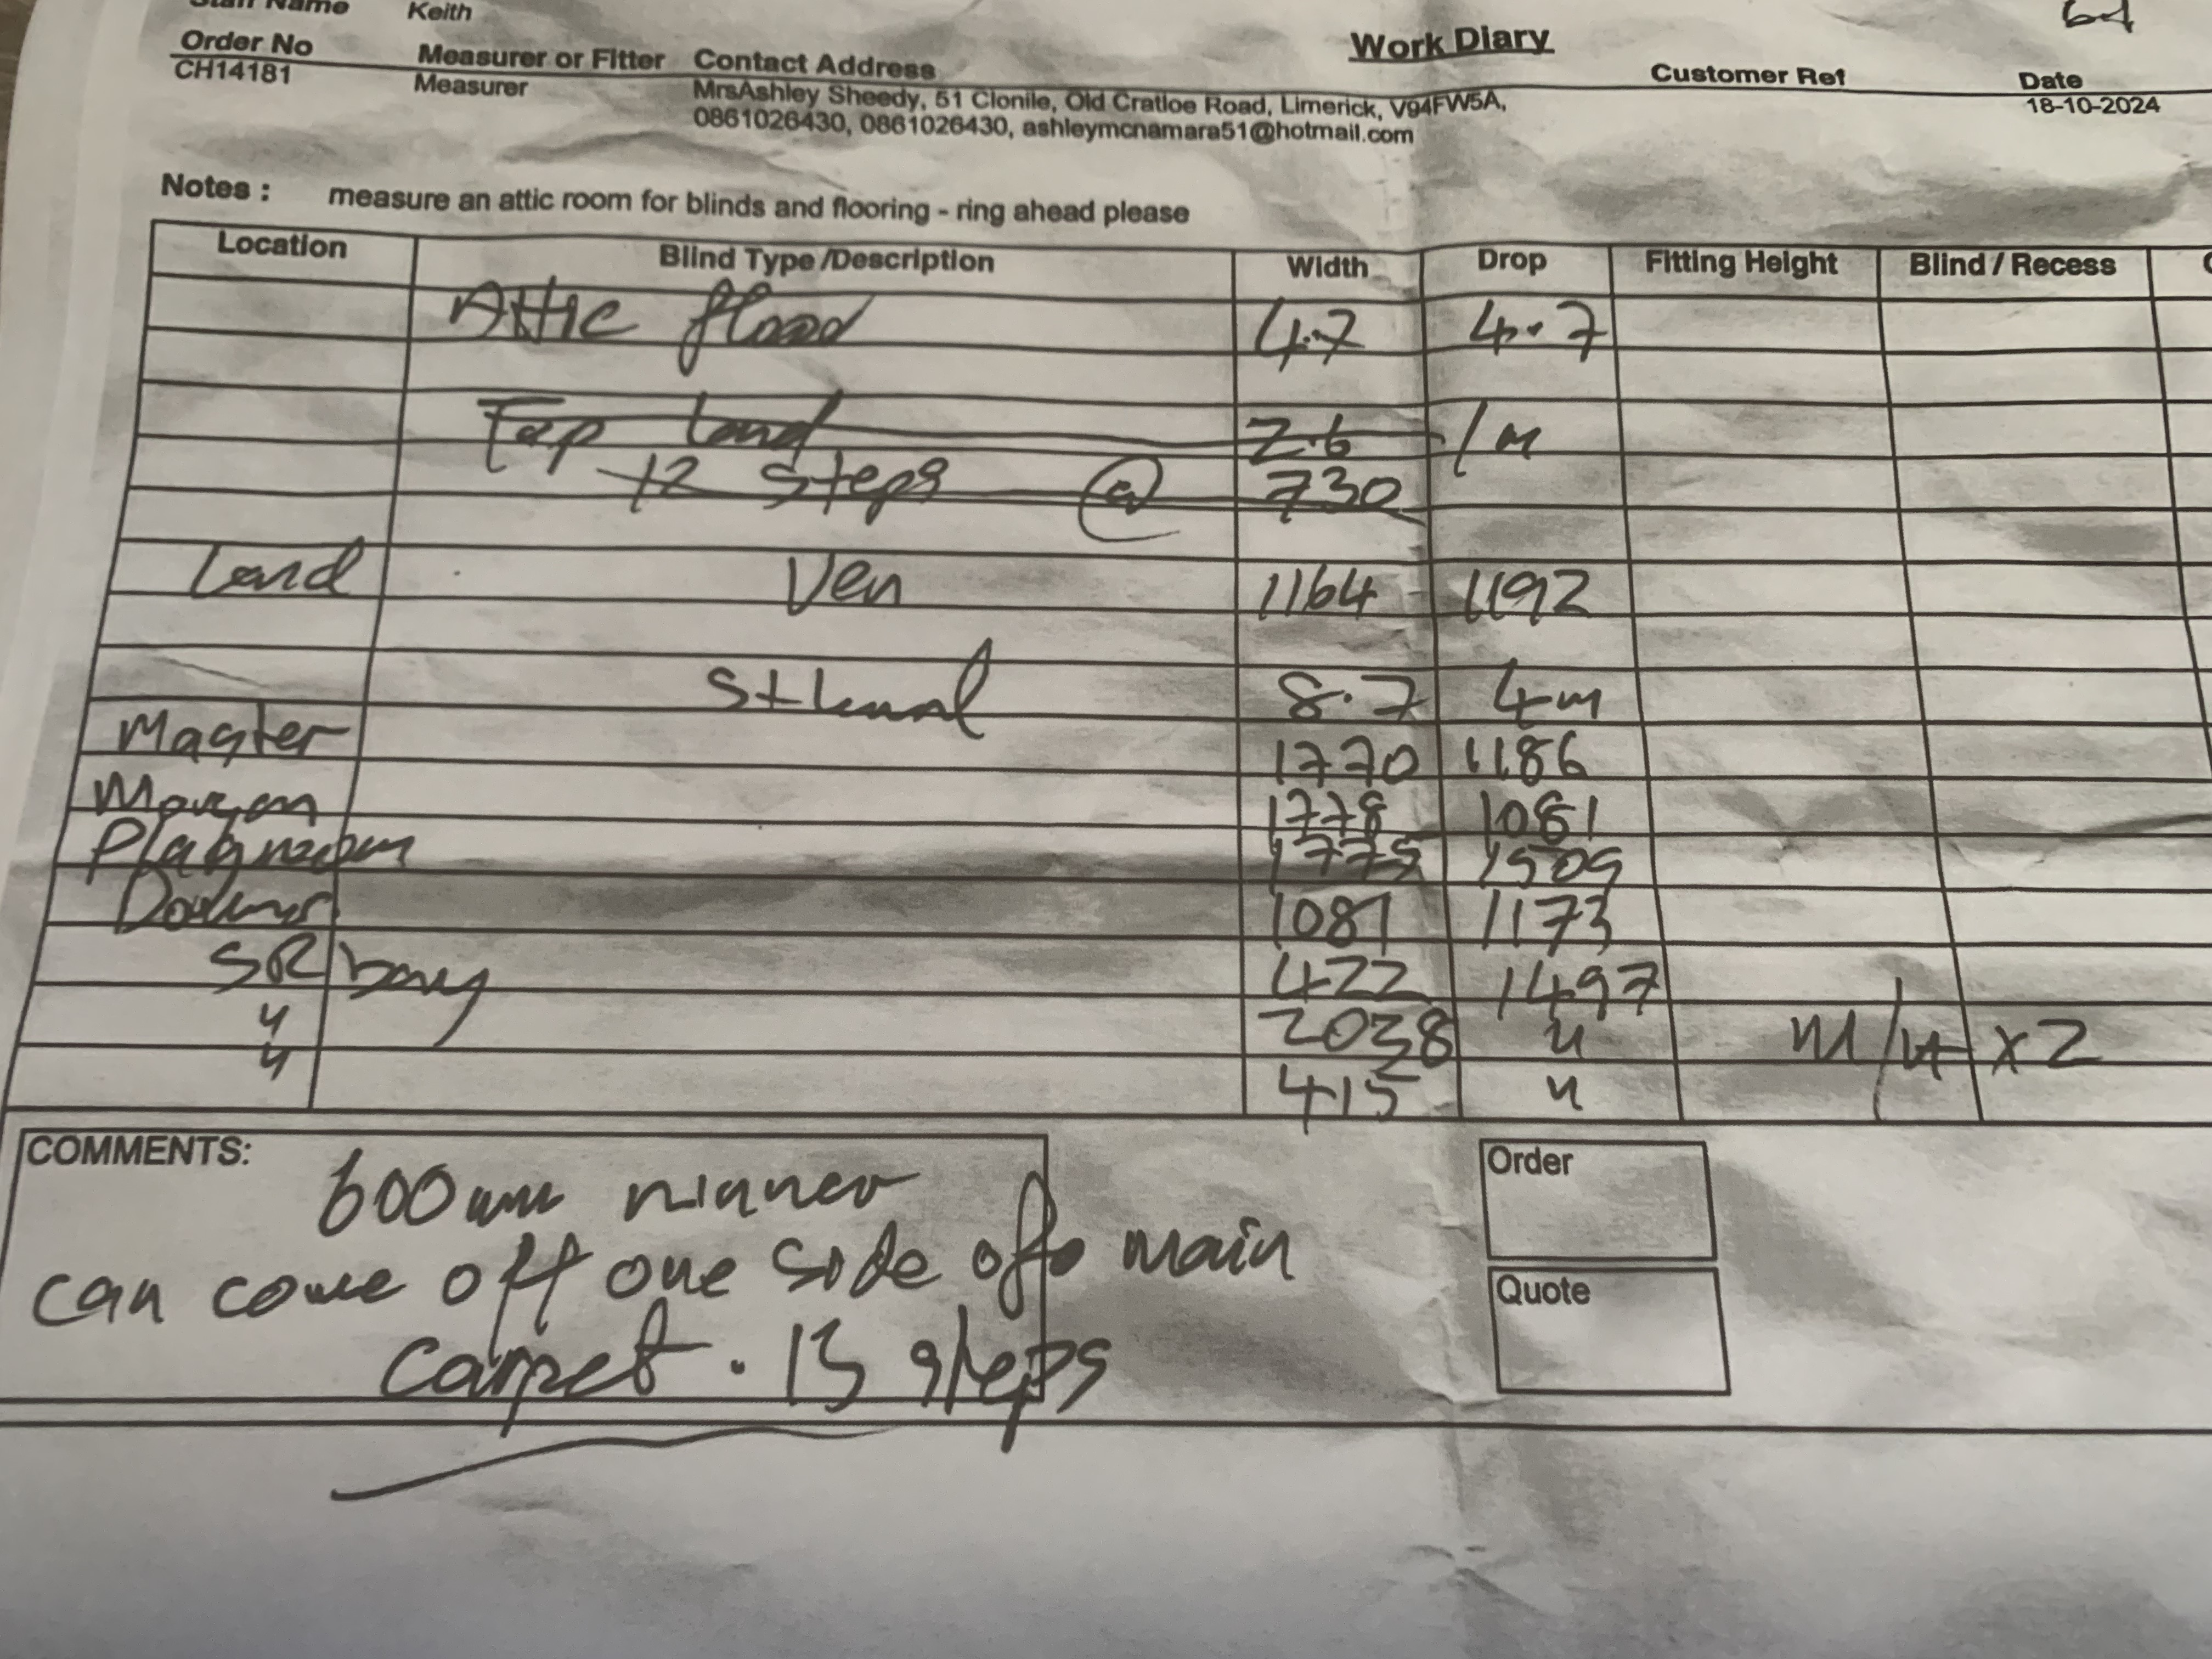 Staff Name Keith
64
Work Diary
Order No Measurer or Fitter Contact Address Customer Ref Date
CH14181 Measurer MrsAshley Sheedy, 51 Clonile, Old Cratloe Road, Limerick, V94FW5A, 18-10-2024
0861026430, 0861026430, ashleymcnamara51@hotmail.com
Notes : measure an attic room for blinds and flooring - ring ahead please
Location Blind Type /Description Width Drop Fitting Height Blind / Recess
Attic 4.7 4.7
Top Land 2.6 1m
12 Steps @ 730
Land Ven 1164 1192
8.7 4m
Master 1770 1186
1778 1081
Playroom 1775 1509
1081 1173
SR bay 422 1497
" 2038 " M/H x 2
" 415 "
COMMENTS: 600mm runner
can come off one side of main
carpet . 13 steps
Order
Quote